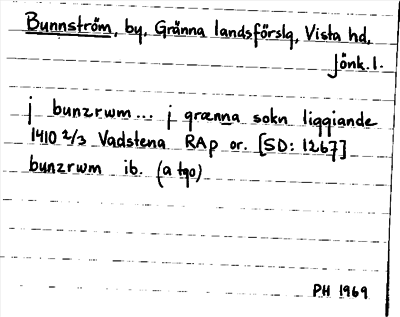 Bunnström, by, Gränna landsförslg, Vista hd,
Jönk. l.
j bunzrwm... j grænna sokn liggiande
1410 2/3 Vadstena RAp or. [SD: 1267]
bunzrwm ib. (a tgo)
PH 1969